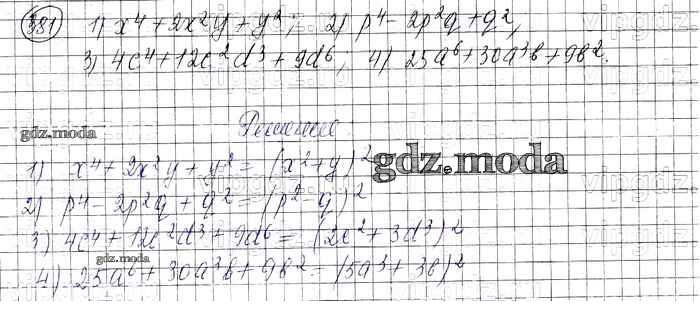 381) 1) x⁴ + 2x²y + y²; 2) p⁴ - 2p²q + q²,
3) 4c⁴ + 12c²d³ + 9d⁶; 4) 25a⁶ + 30a³b + 9b².
Решение
gdz.moda
1) x⁴ + 2x²y + y² = (x² + y)²
gdz.moda
2) p⁴ - 2p²q + q² = (p² - q)²
3) 4c⁴ + 12c²d³ + 9d⁶ = (2c² + 3d³)²
gdz.moda
4) 25a⁶ + 30a³b + 9b² = (5a³ + 3b)²